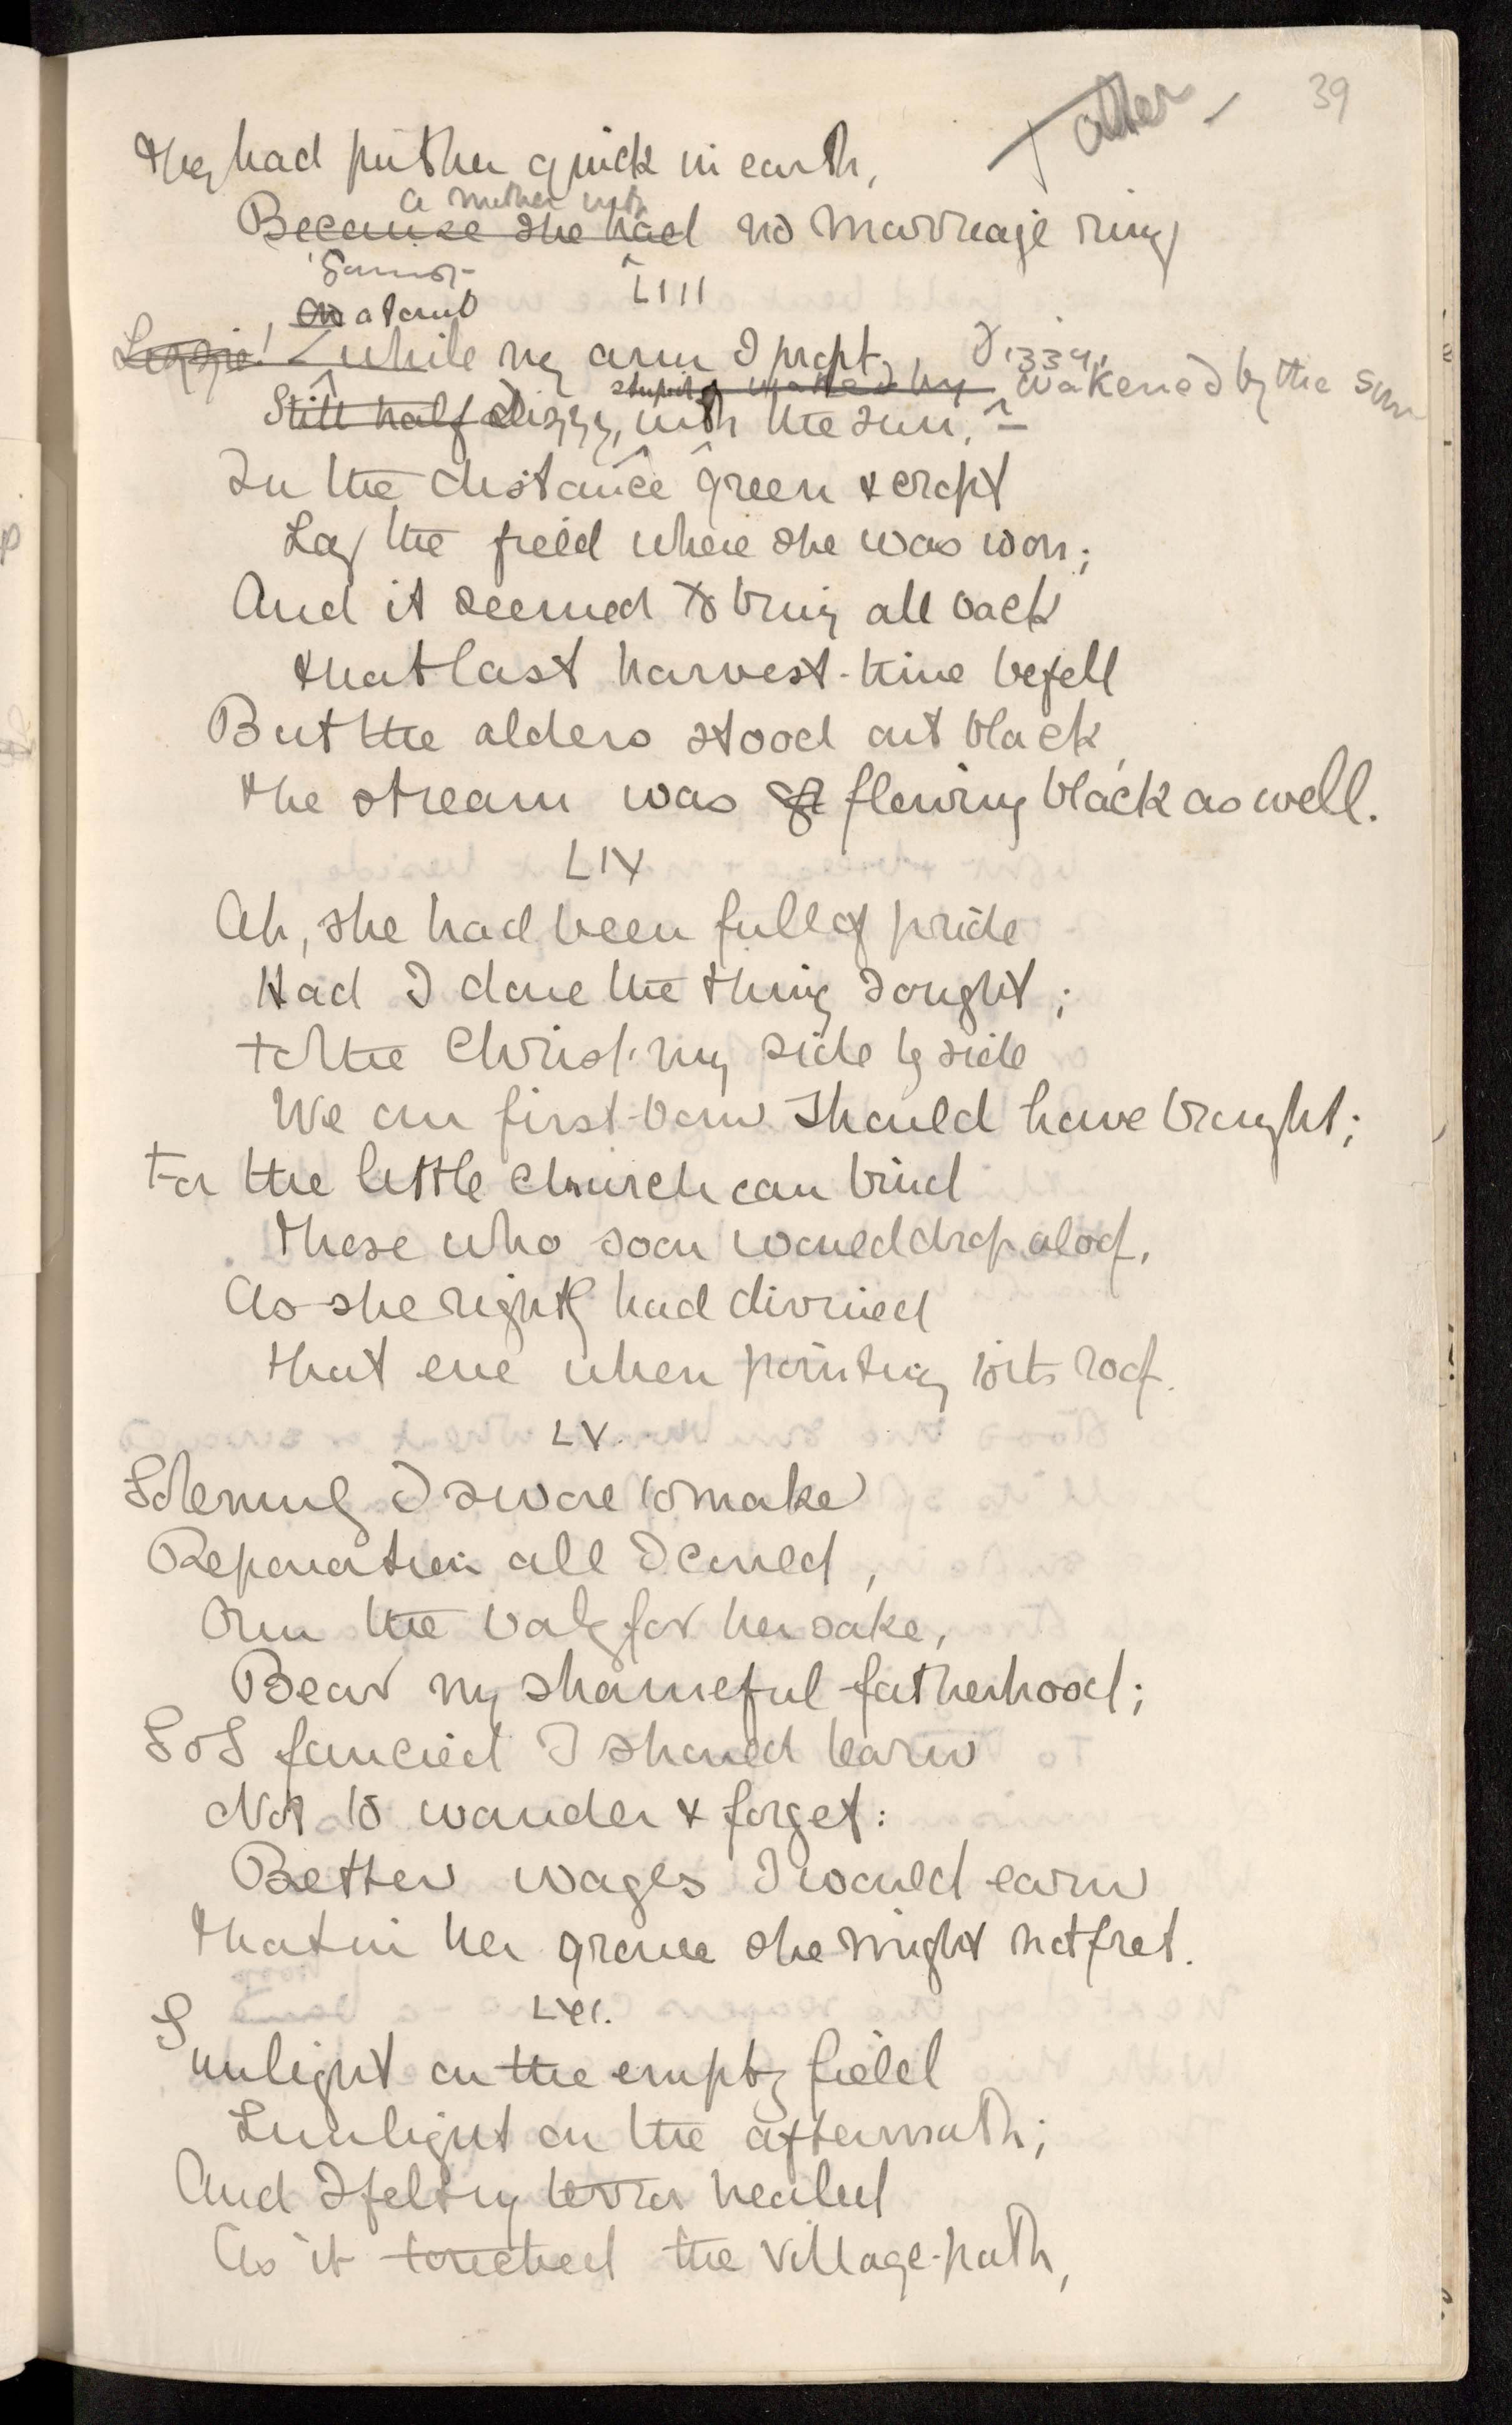 39
alter
They had put her quick in earth,
a mother with
Because she had no marriage ring
LIII
On a tomb
Lizzie! while my arm I propt, Dizzy,
stupid, waked by wakened by the sun
Still half dizzy, with the sun,
In the distance green & cropt
Lay the field where she was won;
And it seemed to bring all back
that last harvest-time befell
But the alders stood out black,
the stream was flowing black as well.
LIV
Ah, she had been full of pride
Had I done the thing I ought;
to the Christ'ning side by side
We our first-born should have brought;
For the little church can bind
those who soon would drop aloof,
As she rightly had divined
that eve when pointing to its roof.
LV.
Solemnly I swore to make
Reparation all I could,
Own the baby for her sake,
Bear my shameful fatherhood;
So I fancied I should learn
Not to wander & forget:
Better wages I would earn
that in her grave she might not fret.
LVI.
Sunlight on the empty field
Sunlight on the aftermath;
And I felt my terror healed
As it touched the village-path,